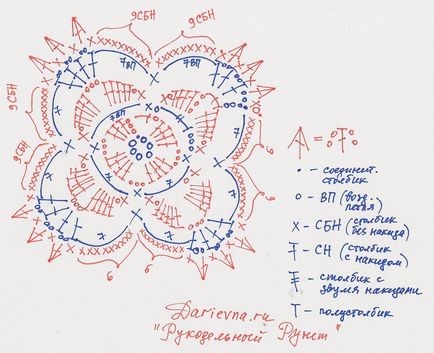 9СБН
9СБН
7ВП
7ВП
9СБН
9СБН
7ВП
7
7
7
7
7
7
9
9
6
6
• - соединит. столбик
о - ВП (возд. петля)
х - СБН (столбик без накида)
- СН (столбик с накидом)
- столбик с двумя накидами
Т - полустолбик
Darievna.ru
"Рукодельный Рунет"